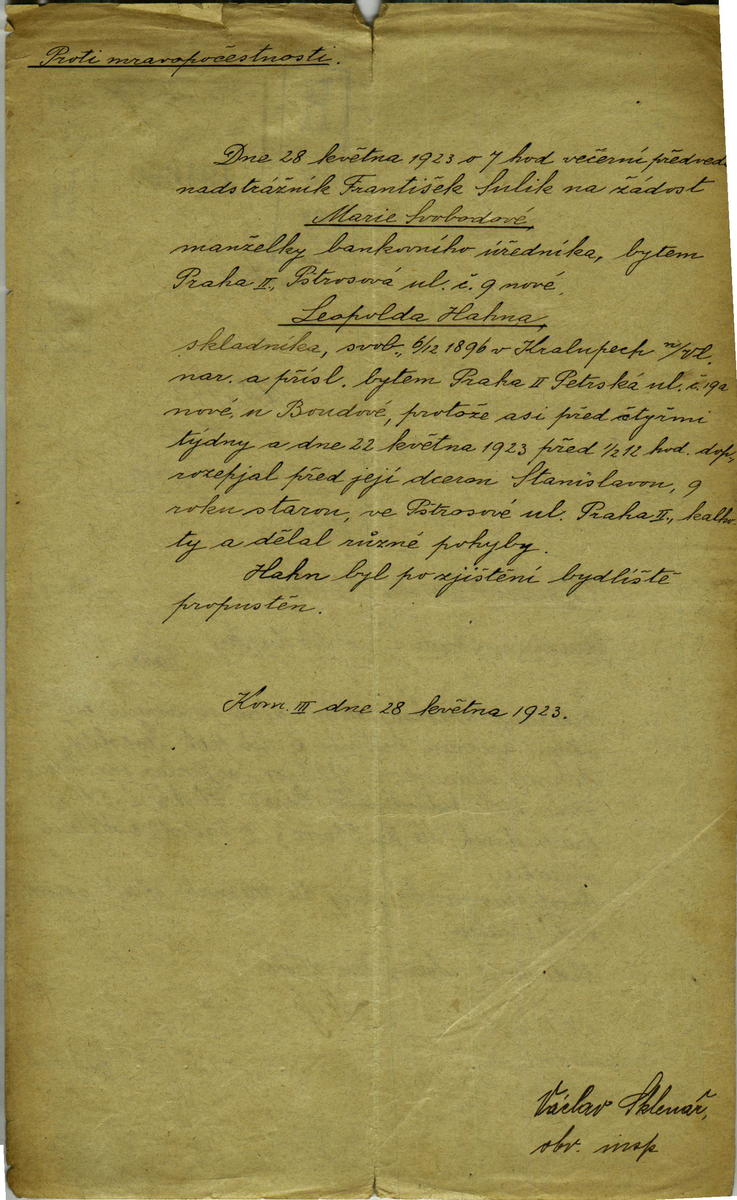 Proti mravopočestnosti.
Dne 28 května 1923 o 7 hod večerní předved
nadstrážník František Sulik na žádost
Marie Svobodové,
manželky bankovního úředníka, bytem
Praha II., Pštrosová ul. č. 9 nové,
Leopolda Hahna,
skladníka, svob., 6/12 1896 v Kralupech n/Vl.
nar. a přísl. bytem Praha II Petrská ul. č. 19a
nové, u Boudové, protože asi před čtyřmi
týdny a dne 22 května 1923 před 1/2 12 hod. dop.
rozepjal před její dcerou Stanislavou, 9
roku starou, ve Pštrosové ul. Praha II., kalho-
ty a dělal různé pohyby.
Hahn byl po zjištění bydliště
propuštěn.
Kom. III dne 28 května 1923.
Václav Sklenář,
obv. insp